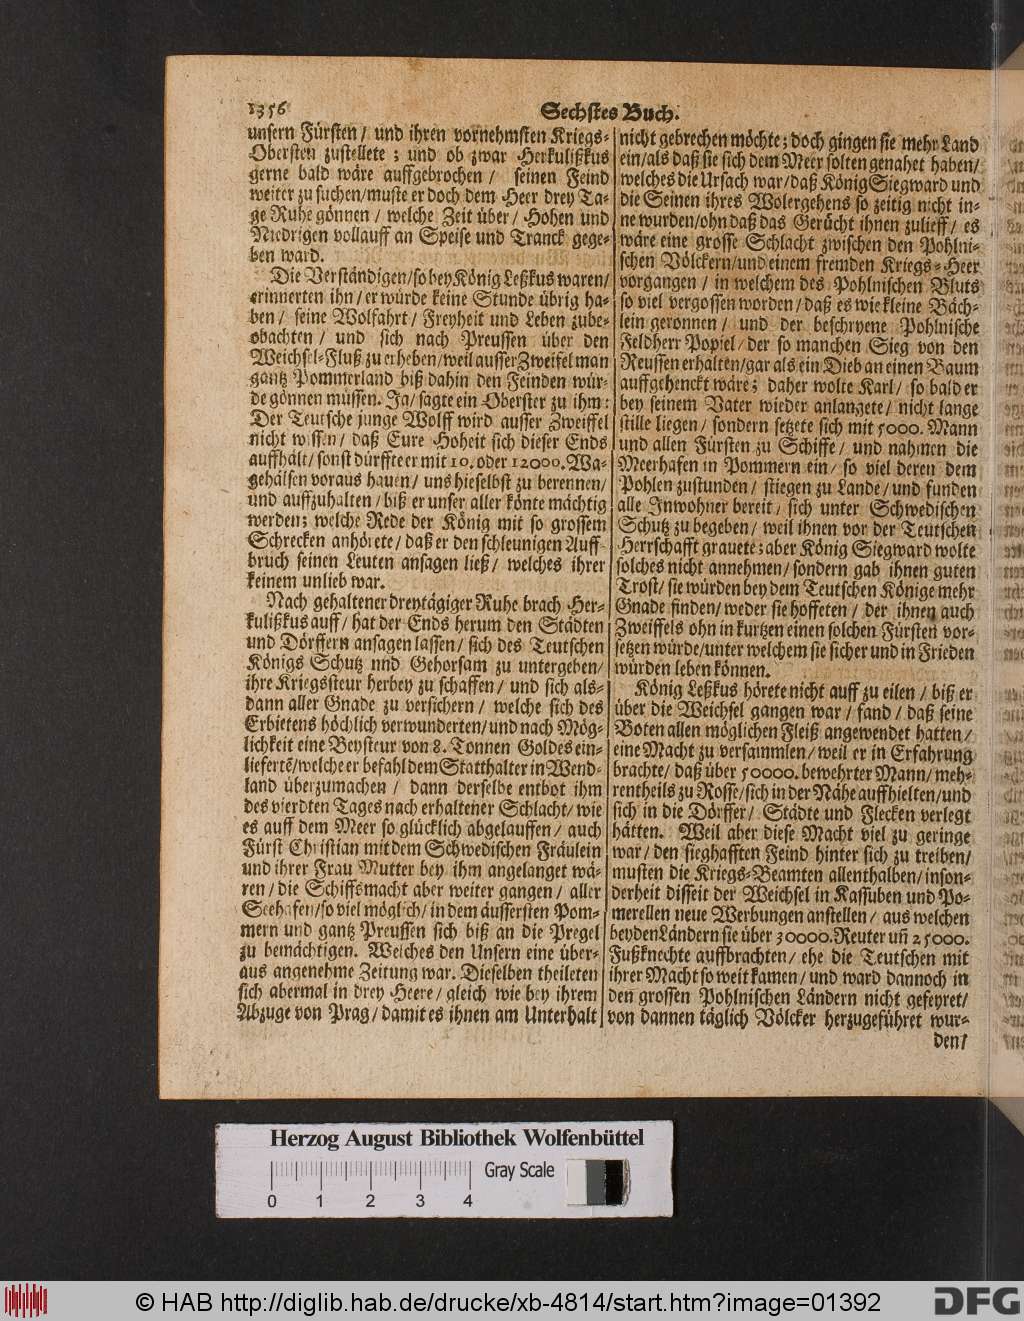 1356
Sechstes Buch.
unsern Fürsten/ und ihren vornehmsten Kriegs-
Obersten zustellete; und ob zwar Herkulißkus
gerne bald wäre auffgebrochen/ seinen Feind
weiter zu suchen/muste er doch dem Heer drey Ta-
ge Ruhe gönnen/ welche Zeit über/ Hohen und
Niedrigen vollauff an Speise und Tranck gege-
ben ward.
Die Verständigen/so bey König Leßkus waren/
erinnerten ihn/er würde keine Stunde übrig ha-
ben/ seine Wolfahrt/ Freyheit und Leben zube-
obachten/ und sich nach Preussen über den
Weichsel-Fluß zu erheben/weil ausser Zweifel man
gantz Pommerland biß dahin den Feinden wür-
de gönnen müssen. Ja/ sagte ein Oberster zu ihm:
Der Teutsche junge Wolff wird ausser Zweiffel
nicht wissen/ daß Eure Hoheit sich dieser Ends
auffhält/sonst dürffte er mit 10. oder 12000. Wa-
gehälsen voraus hauen/ uns hieselbst zu berennen/
und auffzuhalten/ biß er unser aller könte mächtig
werden; welche Rede der König mit so grossem
Schrecken anhörete/ daß er den schleunigen Auff-
bruch seinen Leuten ansagen ließ/ welches ihrer
keinem unlieb war.
Nach gehaltener dreytägiger Ruhe brach Her-
kulißkus auff/ hat der Ends herum den Städten
und Dörffern ansagen lassen/ sich des Teutschen
Königs Schutz und Gehorsam zu untergeben/
ihre Kriegssteur herbey zu schaffen/ und sich als-
dann aller Gnade zu versichern/ welche sich des
Erbietens höchlich verwunderten/und nach Mög-
lichkeit eine Beysteur von 8. Tonnen Goldes ein-
lifertẽ/welche er befahl dem Statthalter in Wend-
land überzumachen/ dann derselbe entbot ihm
des vierdten Tages nach erhaltener Schlacht/ wie
es auff dem Meer so glücklich abgelauffen/ auch
Fürst Christian mit dem Schwedischen Fräulein
und ihrer Frau Mutter bey ihm angelanget wä-
ren/ die Schiffsmacht aber weiter gangen/ aller
Seehafen/so viel möglich/in dem äussersten Pom-
mern und gantz Preussen sich biß an die Pregel
zu bemächtigen. Welches den Unsern eine über-
aus angenehme Zeitung war. Dieselben theileten
sich abermal in drey Heere/ gleich wie bey ihrem
Abzuge von Prag/ damit es ihnen am Unterhalt
nicht gebrechen möchte; doch gingen sie mehr Land
ein/als daß sie sich dem Meer solten genahet haben/
welches die Ursach war/ daß König Siegward und
die Seinen ihres Wolergehens so zeitig nicht in-
ne wurden/ohn daß das Gerücht ihnen zulieff/ es
wäre eine grosse Schlacht zwischen den Pohlni-
schen Völckern/und einem fremden Kriegs-Heer
vorgangen/ in welchem des Pohlnischen Bluts
so viel vergossen worden/ daß es wie kleine Bäch-
lein geronnen/ und der beschryene Pohlnische
Feldherr Popiel/ der so manchen Sieg von den
Reussen erhalten/gar als ein Dieb an einen Baum
auffgehenckt wäre; daher wolte Karl/ so bald er
bey seinem Vater wieder anlangete/ nicht lange
stille liegen/ sondern setzete sich mit 5000. Mann
und allen Fürsten zu Schiffe/ und nahmen die
Meerhafen in Pommern ein/ so viel deren dem
Pohlen zustunden/ stiegen zu Lande/ und funden
alle Inwohner bereit/ sich unter Schwedischen
Schutz zu begeben/ weil ihnen vor der Teutschen
Herrschafft grauete; aber König Siegward wolte
solches nicht annehmen/ sondern gab ihnen guten
Trost/ sie würden bey dem Teutschen Könige mehr
Gnade finden/ weder sie hoffeten/ der ihnen auch
Zweiffels ohn in kurtzen einen solchen Fürsten vor-
setzen würde/unter welchem sie sicher und in Frieden
würden leben können.
König Leßkus hörete nicht auff zu eilen/ biß er
über die Weichsel gangen war/ fand/ daß seine
Boten allen möglichen Fleiß angewendet hatten/
eine Macht zu versammlen/ weil er in Erfahrung
brachte/ daß über 50000. bewehrter Mann/ meh-
rentheils zu Rosse/sich in der Nähe auffhielten/und
sich in die Dörffer/ Städte und Flecken verlegt
hätten. Weil aber diese Macht viel zu geringe
war/ den sieghafften Feind hinter sich zu treiben/
musten die Kriegs-Beamten allenthalben/ inson-
derheit disseit der Weichsel in Kassuben und Po-
merellen neue Werbungen anstellen/ aus welchen
beyden Ländern sie über 30000. Reuter uñ 25000.
Fußknechte auffbrachten/ ehe die Teutschen mit
ihrer Macht so weit kamen/ und ward dannoch in
den grossen Pohlnischen Ländern nicht gefeyret/
von dannen täglich Völcker herzugeführet wur-
den/
Herzog August Bibliothek Wolfenbüttel
Gray Scale
0 1 2 3 4
© HAB http://diglib.hab.de/drucke/xb-4814/start.htm?image=01392
DFG